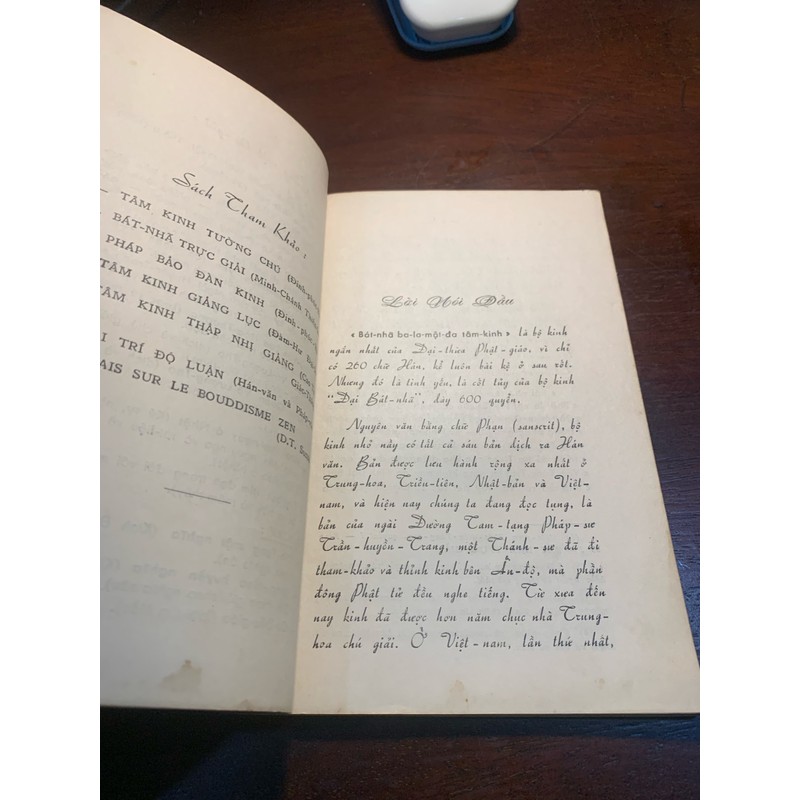 Sách Tham Khảo :
— TÂM KINH TƯỜNG CHÚ
BÁT-NHÃ TRỰC GIẢI (Minh-Chánh
PHÁP BẢO ĐÀN KINH
TÂM KINH GIẢNG LỤC
TÂM KINH THẬP NHỊ GIẢNG
TRÍ ĐỘ LUẬN (Hán-văn và
SUR LE BOUDDISME ZEN
(D.T.
Lời Nói Đầu
« Bát-nhã ba-la-mật-đa tâm-kinh » là bộ kinh
ngắn nhất của Đại-thừa Phật-giáo, vì chỉ
có 260 chữ Hán, kể luôn bài kệ ở sau rốt.
Nhưng đó là tinh yếu, là cốt tủy của bộ kinh
"Đại Bát-nhã", dày 600 quyển.
Nguyên văn bằng chữ Phạn (sanscrit), bộ
kinh nhỏ này có tất cả sáu bản dịch ra Hán
văn. Bản được lưu hành rộng xa nhất ở
Trung-hoa, Triều-tiên, Nhật-bản và Việt-
nam, và hiện nay chúng ta đang đọc tụng, là
bản của ngài Đường Tam-tạng Pháp-sư
Trần-huyền-Trang, một Thánh-sư đã đi
tham-khảo và thỉnh kinh bên Ấn-độ, mà phần
đông Phật tử đều nghe tiếng. Từ xưa đến
nay kinh đã được hơn năm chục nhà Trung-
hoa chú giải. Ở Việt-nam, lần thứ nhất,